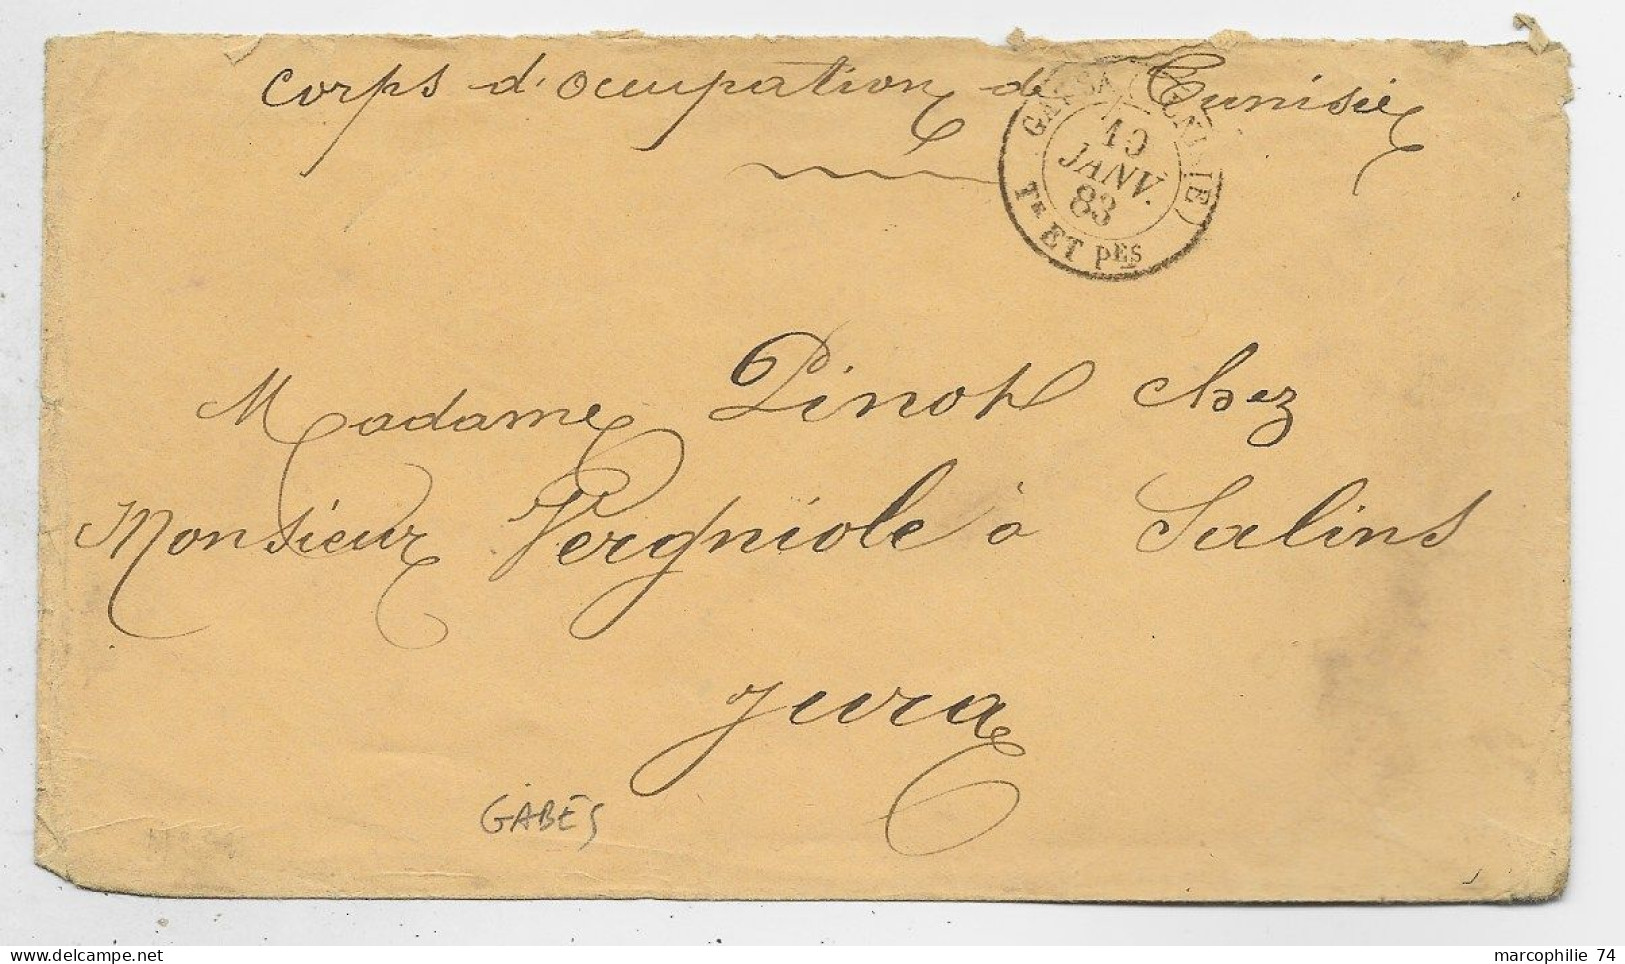 Corps d'occupation de Tunisie
GAFSA (TUNISIE)
10
JANV.
83
Tr ET PES
Madame Pinot chez
Monsieur Vergniole à Salins
Jura
GABES
marcophilie 74